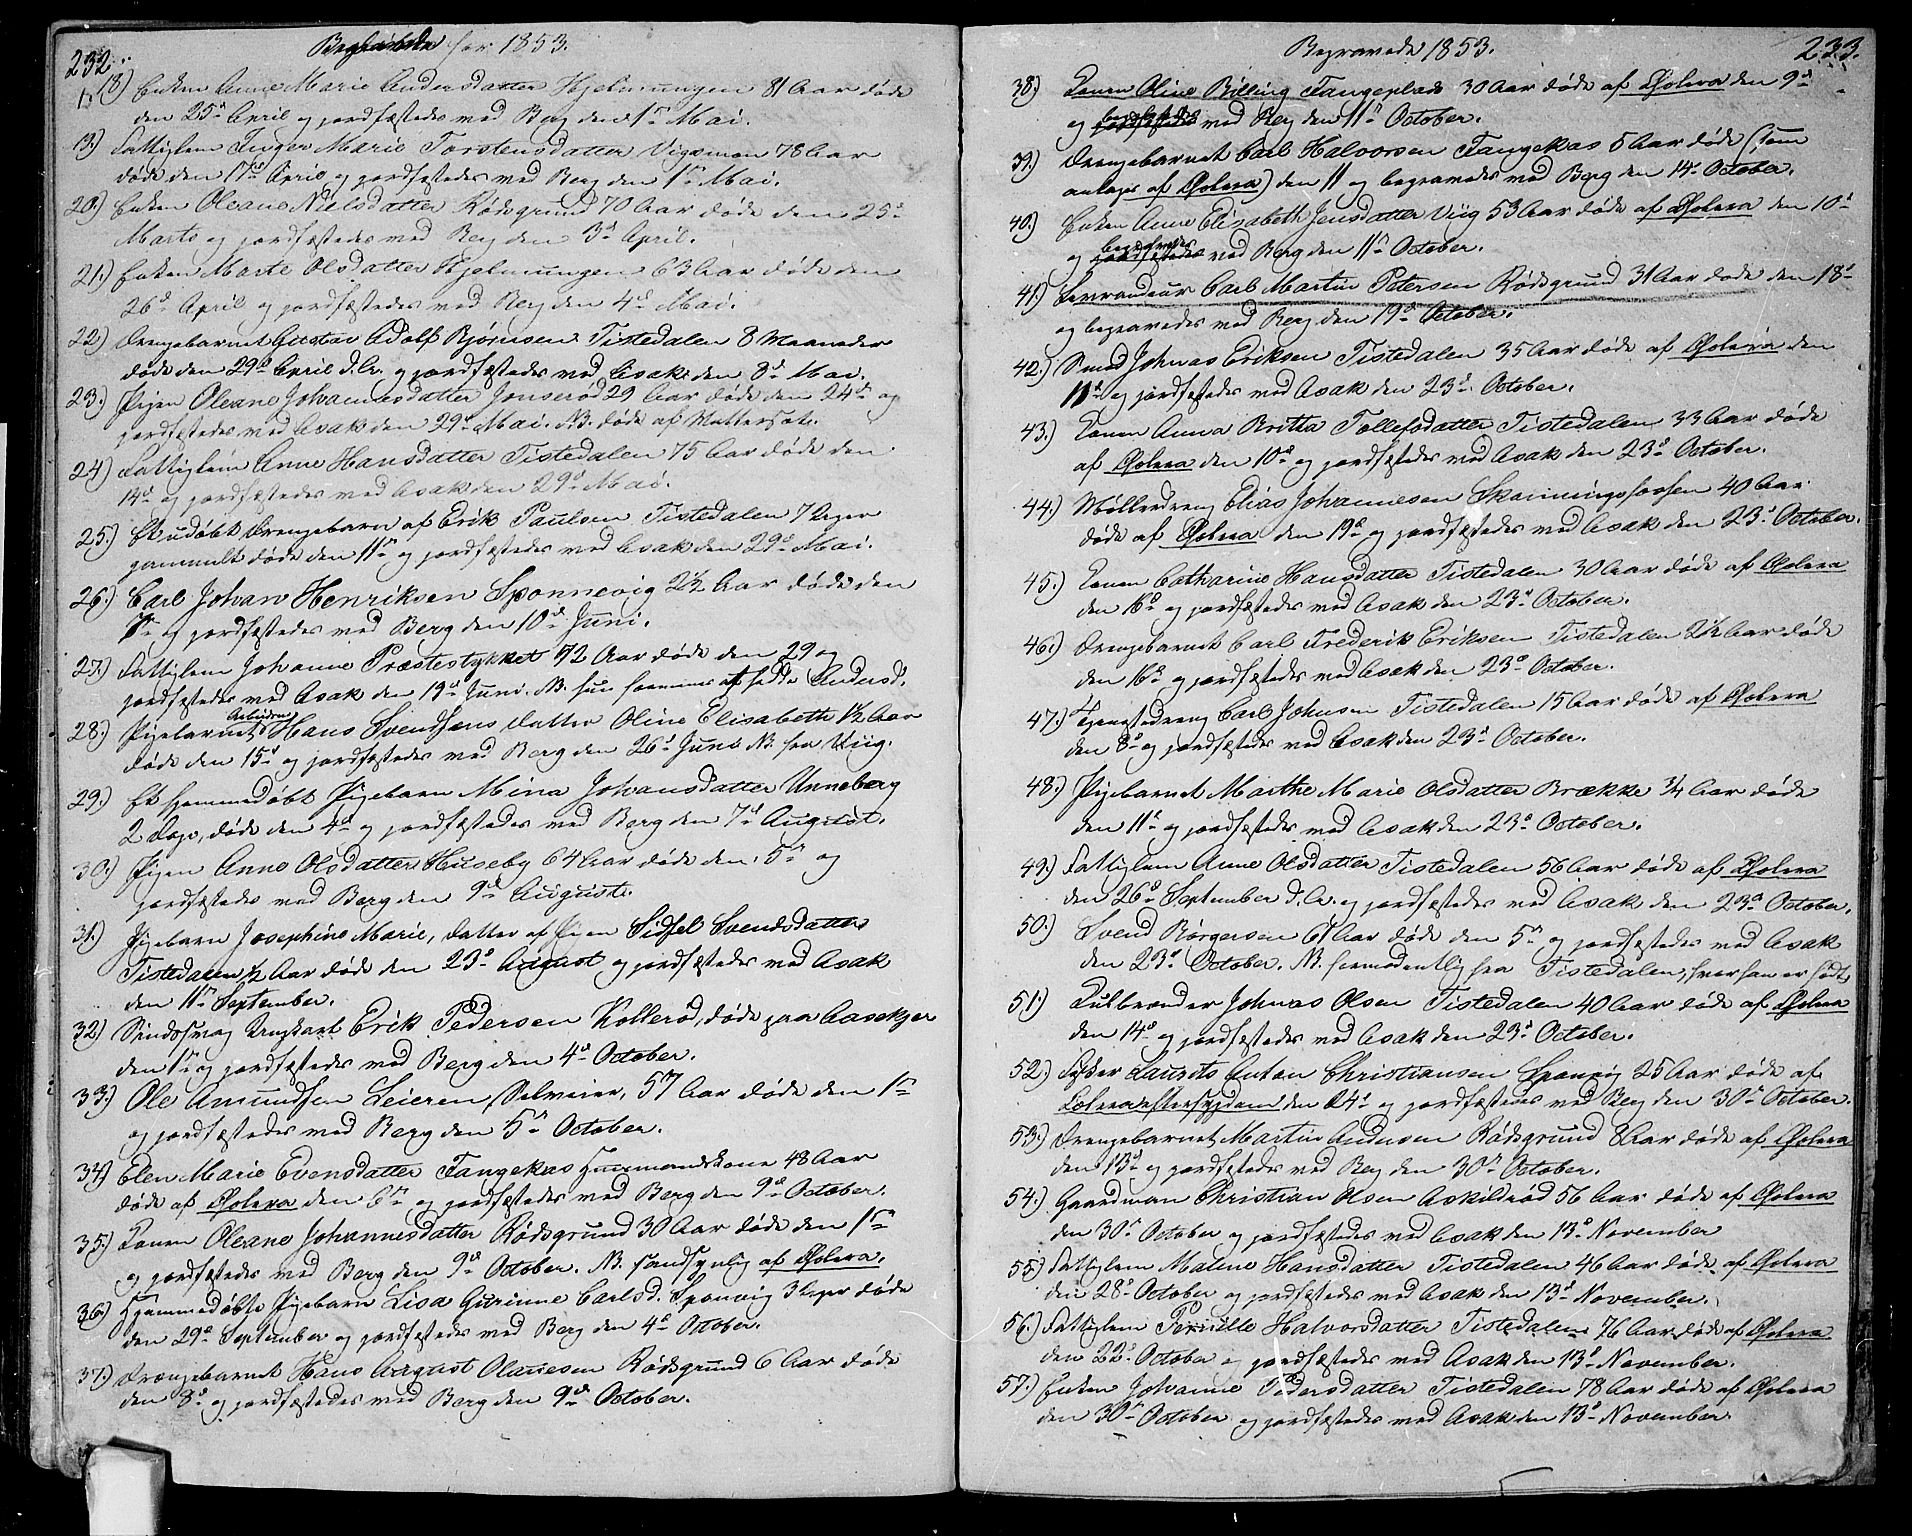 232.
Begravede for 1853.
18) Enken Anne Marie Andersdatter Hjelmungen 81 Aar døde
den 25d April og jordfæstedes ved Berg den 1n Mai.
19.) Fattiglem Inger Marie Torstensdatter Vigsmon 78 Aar
døde den 17d April og jordfæstedes ved Berg den 1n Mai.
20.) Enken Oleane Nielsdatter Rødsgrund 70 Aar døde den 25d
Marts og jordfæstedes ved Berg den 3d April.
21.) Enken Marte Olsdatter Hjelmungen 63 Aar døde den
26d April og jordfæstedes ved Berg den 4d Mai.
22) Drengebarnet Gustav Adolf Bjørnsen Tistedalen 8 Maaneder
døde den 29d April d. A. og jordfæstedes ved Asak den 8d Mai.
23.) Pigen Oleane Johannesdatter Jonserød 29 Aar døde den 24d og
jordfæstedes ved Asak den 29d Mai. NB. døde af
24) Fattiglem Anne Hansdatter Tistedalen 75 Aar døde den
14d og jordfæstedes ved Asak den 29d Mai.
25.) Et udøbt Drengebarn af Erik Paulsen Tistedalen 7 Uger
gammelt døde den 11n og jordfæstedes ved Asak den 29d Mai.
26.) Carl Johan Henriksen Sponnevig 2½ Aar døde den
7n og jordfæstedes ved Berg den 10d Juni.
27.) Fattiglem Johanne Præstestykket 72 Aar døde den 29 og
jordfæstedes ved Asak den 19d Juni. NB. hun at hedde Andersd.
28.) Pigebarnet Arbeider Hans Svendsens Datter Oline Elisabeth 1½ Aar
døde den 15d og jordfæstedes ved Berg den 26d Juni NB. fra Viig.
29.) Et hjemmedøbt Pigebarn Mina Johansdatter Unneberg
2 Dage, døde den 4d og jordfæstedes ved Berg den 7d August.
30.) Pigen Anne Olsdatter Huseby 64 Aar døde den 5n og
jordfæstedes ved Berg den 9d August.
31.) Pigebarn Josephine Marie, Datter af Pigen Sidsel Svendsdatter
Tistedalen ½ Aar døde den 23d August og jordfæstedes ved Asak
den 11n September.
32) Sindssvag Ungkarl Erik Pedersen Kollerød, døde paa
den 1n og jordfæstedes ved Berg den 4d October.
33.) Ole Amundsen Leieren Selveier, 57 Aar døde den 1n
og jordfæstedes ved Berg den 5n October.
34) Elen Marie Evensdatter Tangekas Huusmandskone 48 Aar
døde af Cholera den og jordfæstedes ved Berg den 9d October.
35.) Konen Oleane Johannesdatter Rødsgrund 30 Aar døde den 1n
og jordfæstedes ved Berg den 9d October. NB. sandsynlig af Cholera.
36.) Hjemmedøbte Pigebarn Lisa Gurinne Carlsd. Sponvig 3 Uger døde
den 29d September og jordfæstedes ved Berg den 4d October.
37.) Drengebarnet Hans August Olavesen Rødsgrund 6 Aar døde
den 8d og jordfæstedes ved Berg den 9d October.
Begravede 1853.
233.
38.) Konen Oline Billing Tangeplads 30 Aar døde af Cholera den 9d
og begravedes ved Berg den 11n October.
39.) Drengebarnet Carl Halvorsen Tangekas 5 Aar døde (som
antages af Cholera) den 11 og begravedes ved Berg den 14d October.
40.) Enken Anne Elisabeth Jensdatter Viig 53 Aar døde af Cholera den 10d
og begravedes ved Berg den 11n October.
41.) Carl Martin Petersen Rødsgrund 31 Aar døde den 18d
og begravedes ved Berg den 19d October.
42.) Smed Johnas Eriksen Tistedalen 35 Aar døde af Cholera den
11d og jordfæstedes ved Asak den 23d October.
43.) Konen Anna Britta Tollefsdatter Tistedalen 33 Aar døde
af Cholera den 10d og jordfæstedes ved Asak den 23d October.
44.) Møllerdreng Elias Johannesen Skonningsfossen 40 Aar
døde af Cholera den 19d og jordfæstedes ved Asak den 23d October.
45.) Konen Catharine Hansdatter Tistedalen 30 Aar døde af Cholera
den 16d og jordfæstedes ved Asak den 23d October.
46.) Drengebarnet Carl Frederik Eriksen Tistedalen 2½ Aar døde
den 16d og jordfæstedes ved Asak den 23d October.
47.) Tjenestedreng Carl Johnsen Tistedalen 15 Aar døde af Cholera
den 8d og jordfæstedes ved Asak den 23d October.
48.) Pigebarnet Marthe Marie Olsdatter Brække ¾ Aar døde
den 11d og jordfæstedes ved Asak den 23d October.
49.) Fattiglem Anne Olsdatter Tistedalen 56 Aar døde af Cholera
den 26d September d. A. og jordfæstedes ved Asak den 23d October.
50.) Svend Børgersen 61 Aar døde den 5n og jordfæstedes ved Asak
den 23d October. NB. formodentlig fra Tistedalen, hvor han er født.
51.) Kulbrænder Johnas Olsen Tistedalen 40 Aar døde af Cholera
den 14d og jordfæstedes ved Asak den 23d October.
52.) Laurits Anton Christiansen Sponvig 25 Aar døde af
Coleraeftersygdom den 24d og jordfæstedes ved Berg den 30n October.
53.) Drengebarnet Martin Andersen Rødsgrund 8 Aar døde af Cholera
den 13d og jordfæstedes ved Berg den 30n October.
54.) Gaardman Christian Olsen Askilsrød 56 Aar døde af Cholera
den 30n October og jordfæstedes ved Asak den 13d November
55.) Fattiglem Malene Hansdatter Tistedalen 46 Aar døde af Cholera
den 28d October og jordfæstedes ved Asak den 13d November.
56.) Fattiglem Pernille Halvorsdatter Tistedalen 76 Aar døde af Cholera
den 22d October og jordfæstedes ved Asak den 13d November.
57.) Enken Johanne Pedersdatter Tistedalen 78 Aar døde af Cholera
den 30n October og jordfæstedes ved Asak den 13d November.